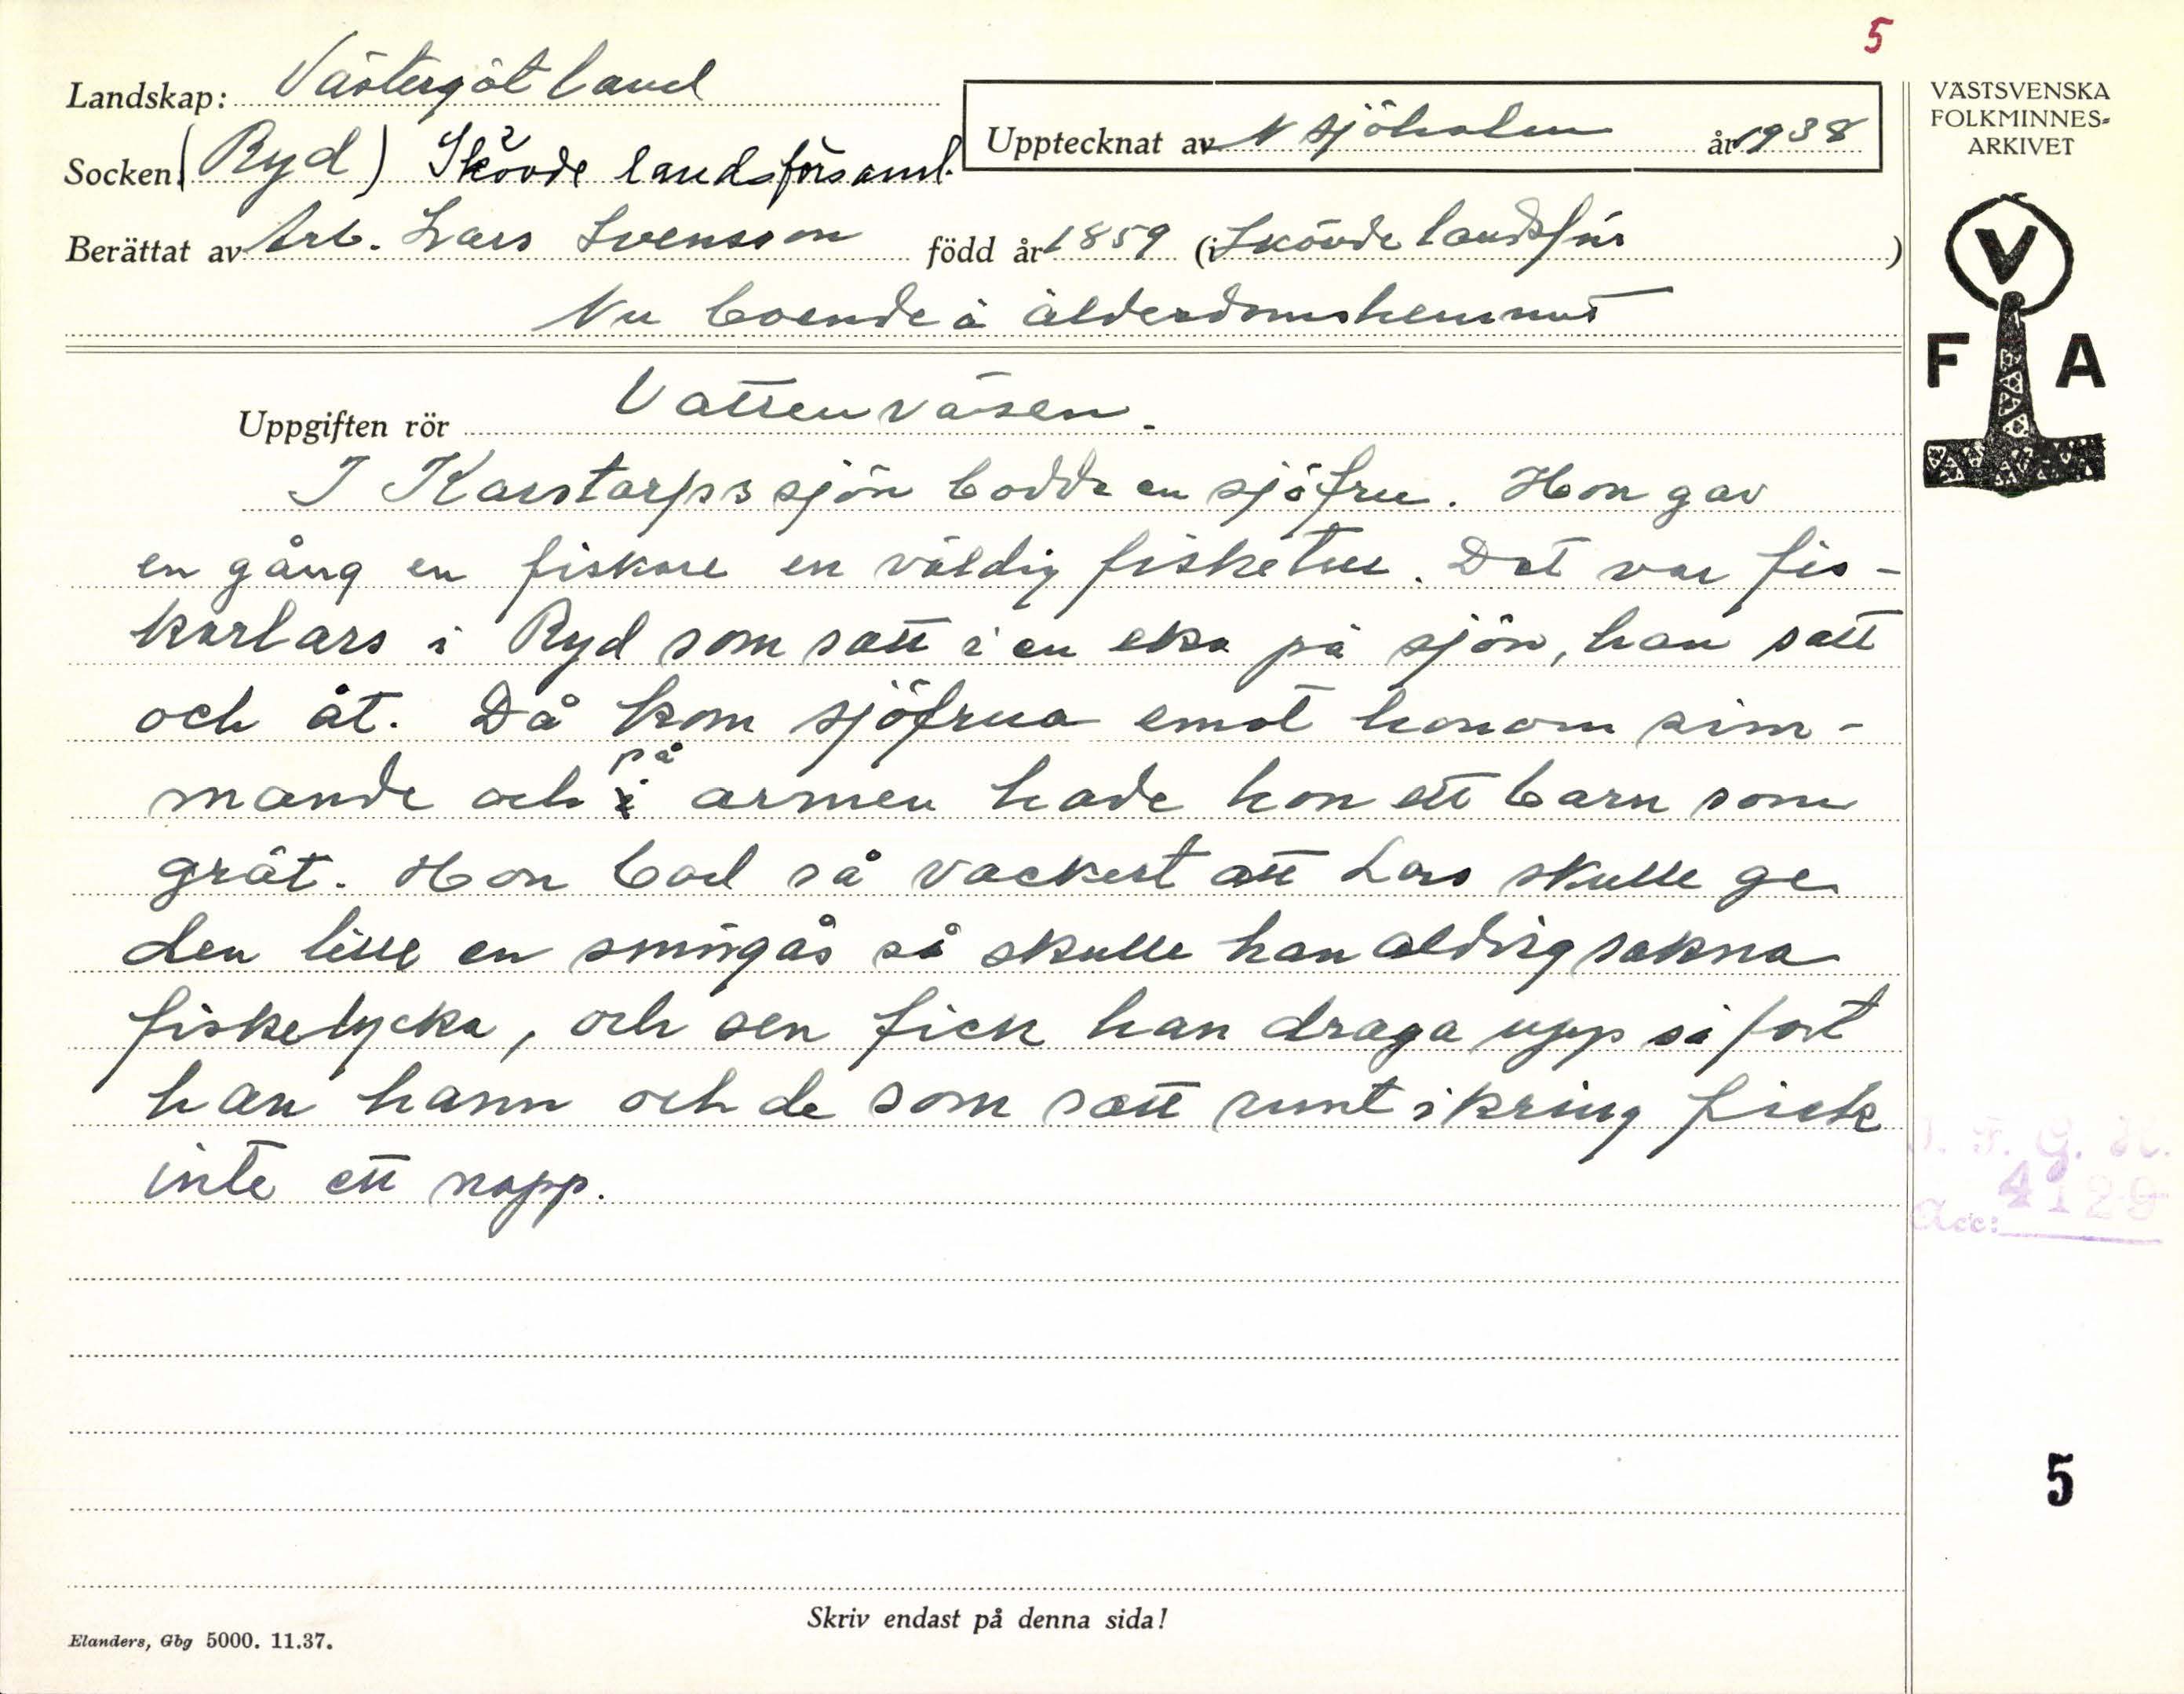 5
Landskap: Västergötland
Upptecknat av N Sjöholm år 1938
Socken: (Ryd) Skövde landsförsaml.
Berättat av Arb. Lars Svensson född år 1859 (i Skövde landsför )
Nu boende å ålderdomshemmet
Uppgiften rör Vattenväsen.
I Karstorps sjön bodde en sjöfru. Hon gav
en gång en fiskare en väldig fisketur. Det var fis-
karlars i Ryd som satt i en eka på sjön, han satt
och åt. Då kom sjöfrua emot honom sim-
mande och på armen hade hon ett barn som
grät. Hon bad så vackert att Lars skulle ge
den lille en smörgås så skulle han aldrig sakna
fiskelycka, och sen fick han draga upp så fort
han hann och de som satt runt ikring fick
inte ett napp.
Skriv endast på denna sida!
Elanders, Gbg 5000. 11.37.
VÄSTSVENSKA
FOLKMINNES-
ARKIVET
V
F A
I. F. G. H.
Acc: 4129
5